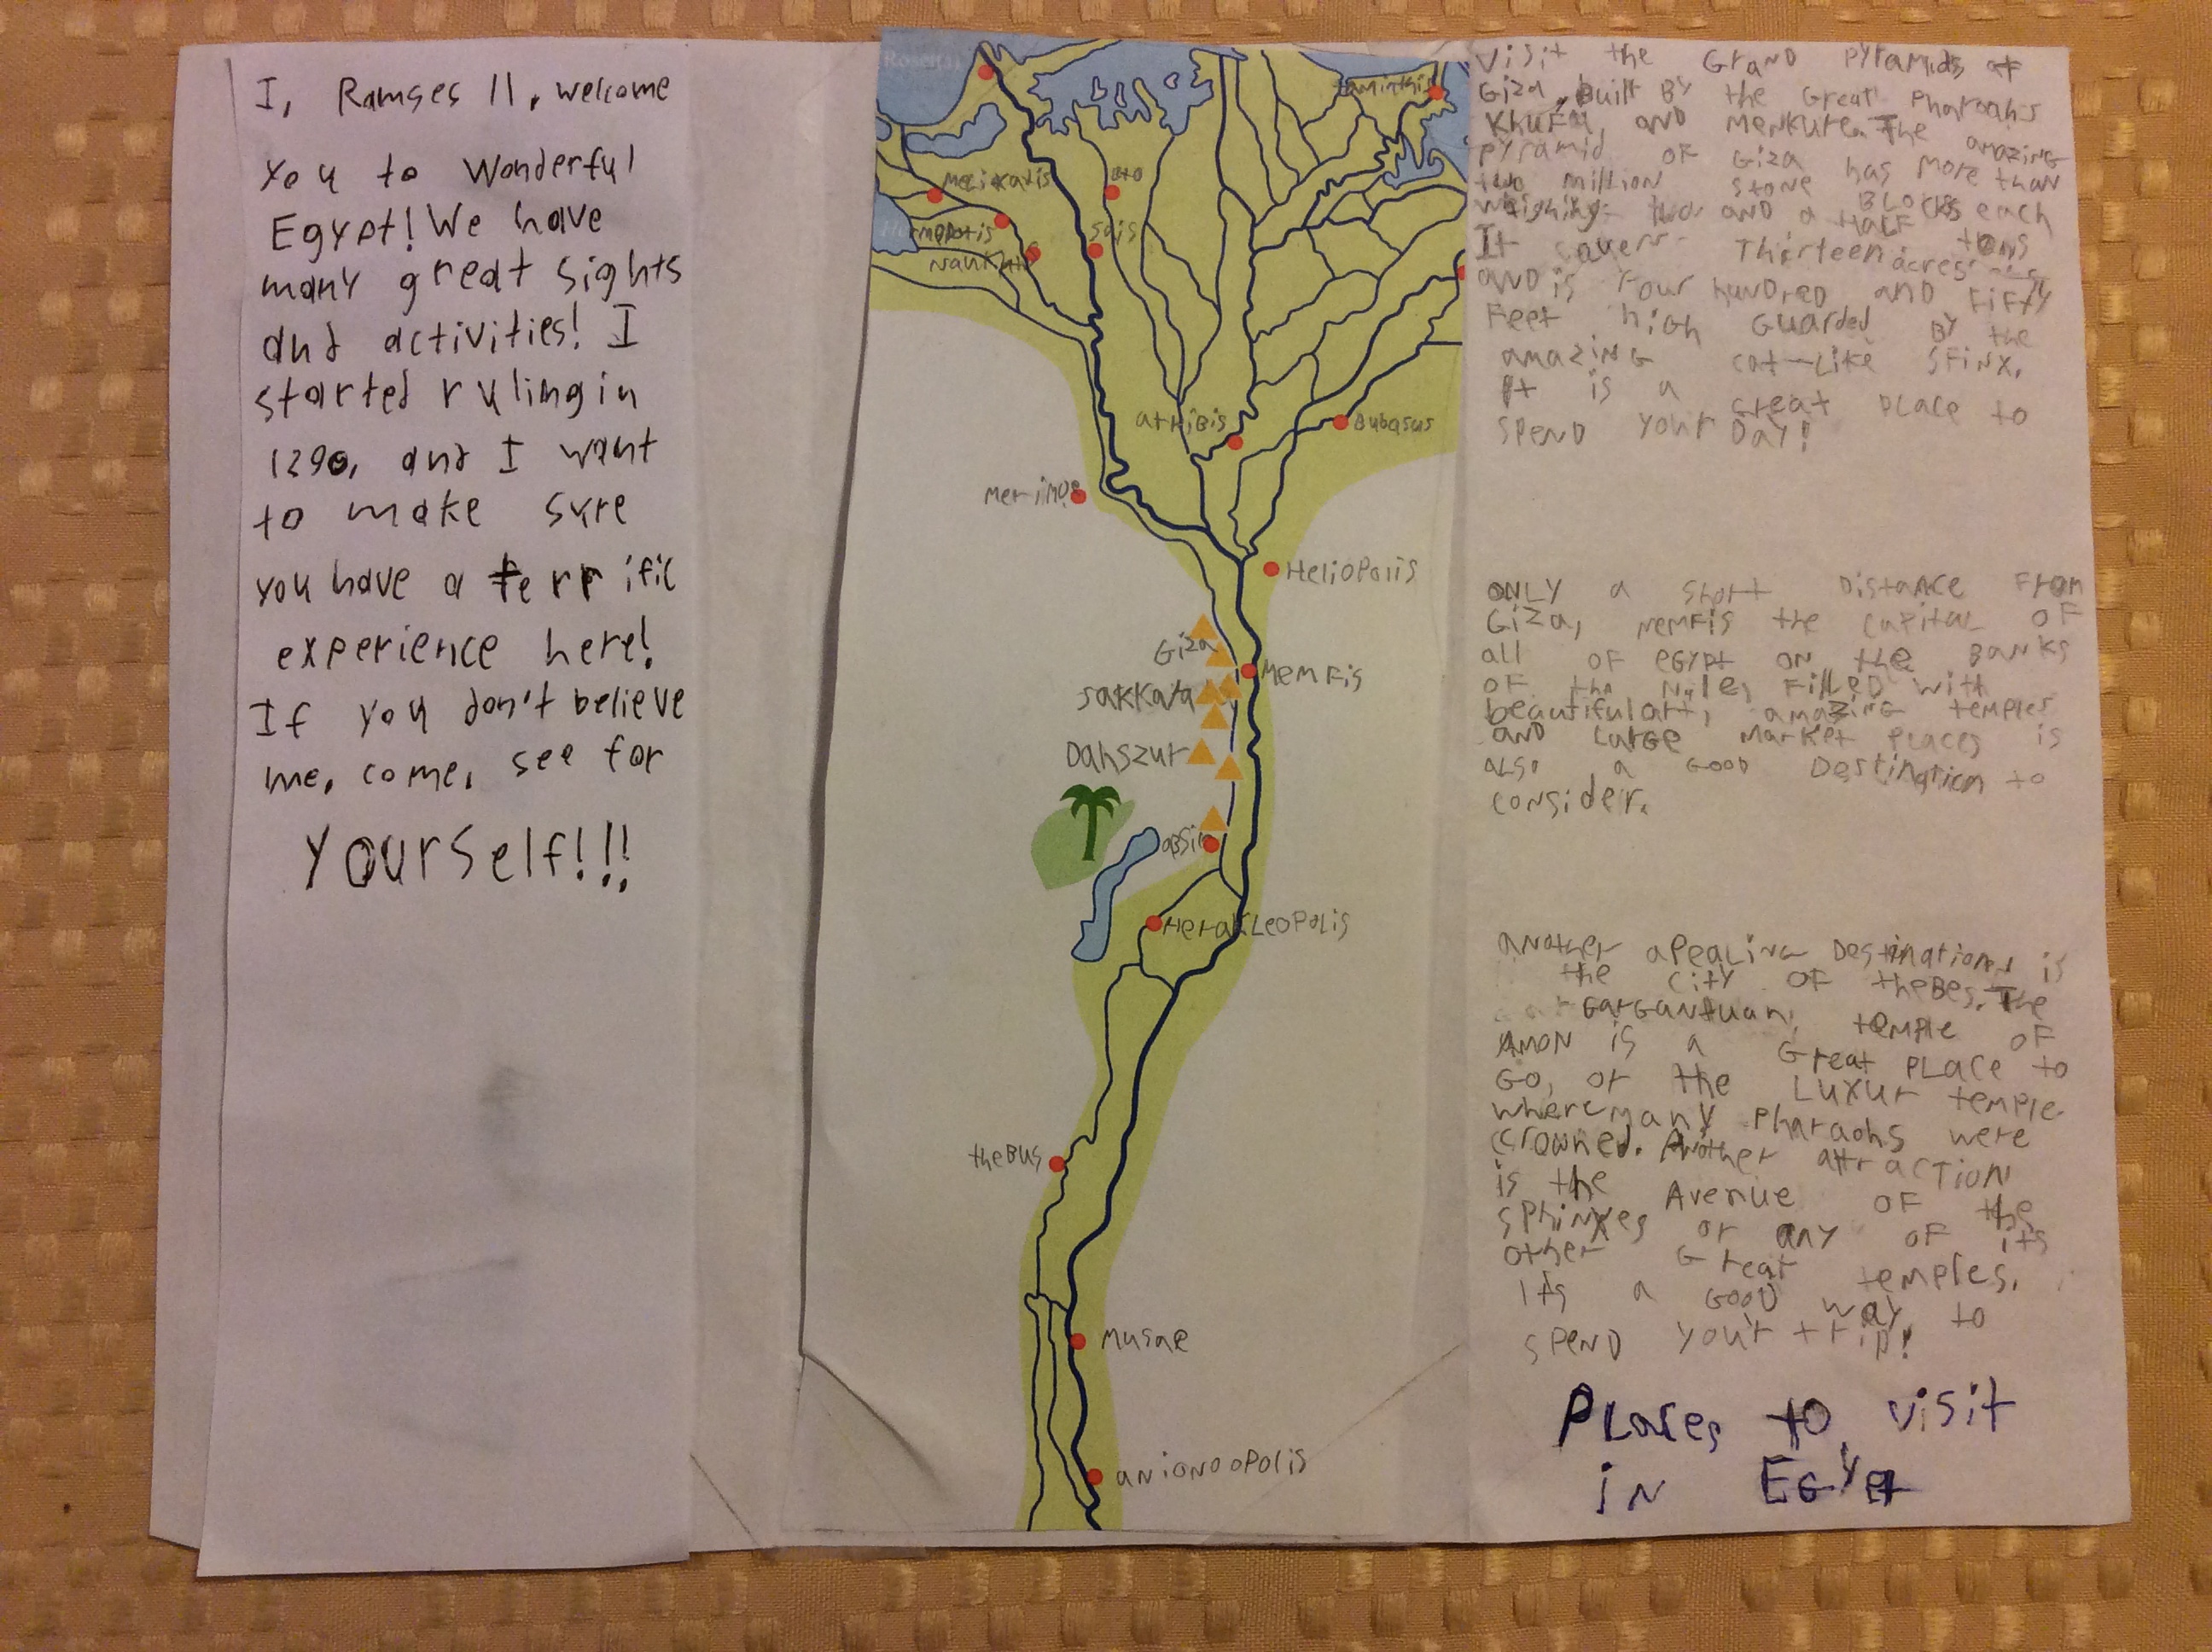 I, Ramses II, welcome
you to Wonderful
Egypt! We have
many great sights
and activities! I
started ruling in
1290, and I want
to make sure
you have a terrific
experience here!
If you don't believe
me, come, see for
yourself!!!
Rosetta
tamiathis
Buto
Sais
Naukratis
athibis
Bubasus
Merimos
HelioPolis
Giza
MeMFis
Sakkara
Dahszur
HerakLeoPolis
theBus
Musae
anionoopolis
Visit the GranD Pyramids at
Giza, Built By the Great Pharoahs
KhuFu, anD Menkure. The amazing
Pyramid of Giza has more than
two million stone Blocks each
weighing two anD a half tons
It covers Thirteen acres
anD is Four hunDreD anD FiFty
Feet high Guarded By the
amazing cat-like SFinx.
It is a Great Place to
SpenD your Day!
ONLY a short Distance From
Giza, MemFis the capital of
all of egypt on the Banks
of the Nile, FilleD with
beautiful art, amazing temples
anD Large Market Places is
also a GooD Destination to
consider.
another apealing Destination is
the city of theBes. The
Gargantuan temple of
Amon is a Great Place to
Go, or the Luxur temple
where many Pharaohs were
crowned. Another attraction
is the Avenue of the
sphinxes or any of its
other Great temples.
Its a GooD way to
spenD your trip!
PLaces to visit
in EGyPt